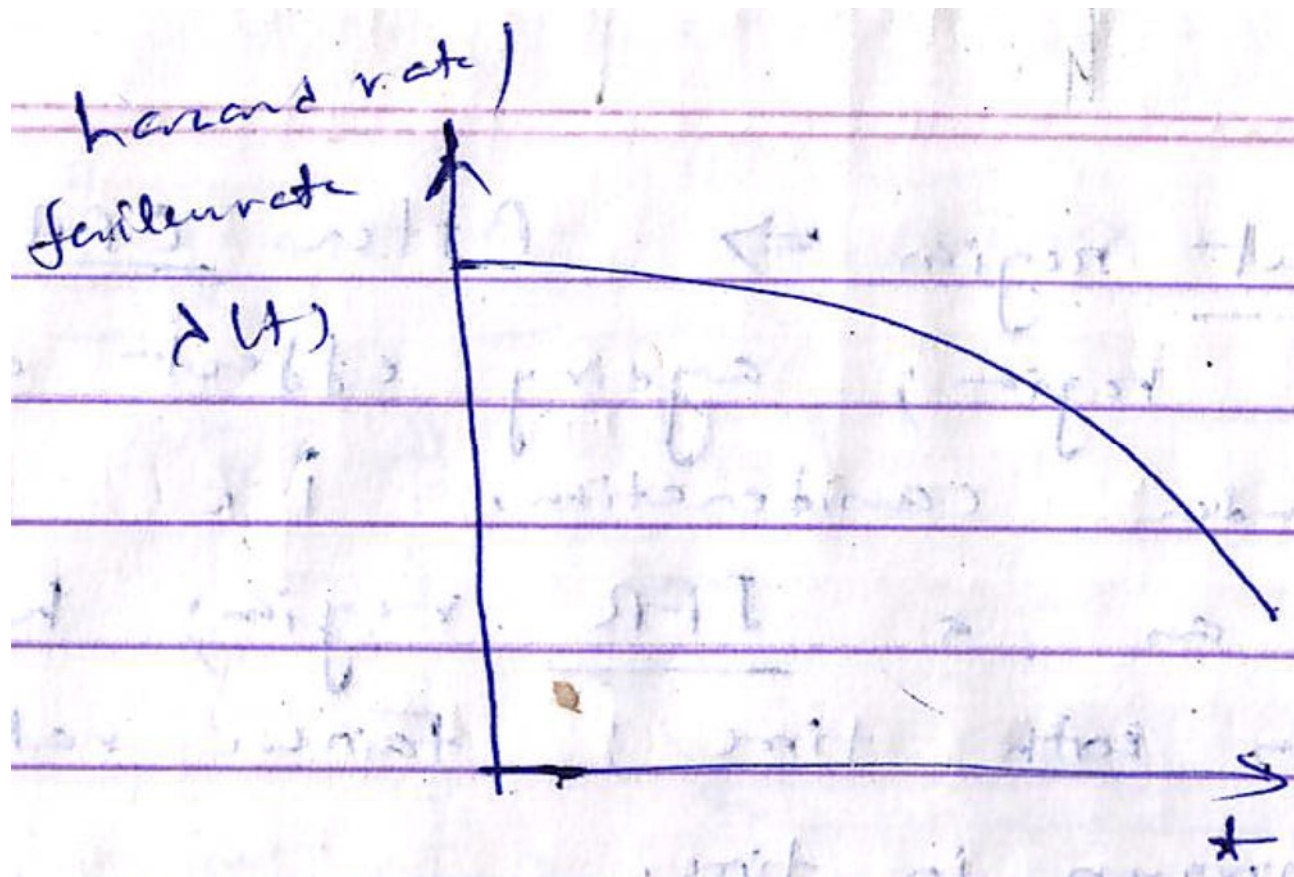 hazard rate/
failure rate
λ(t)
t